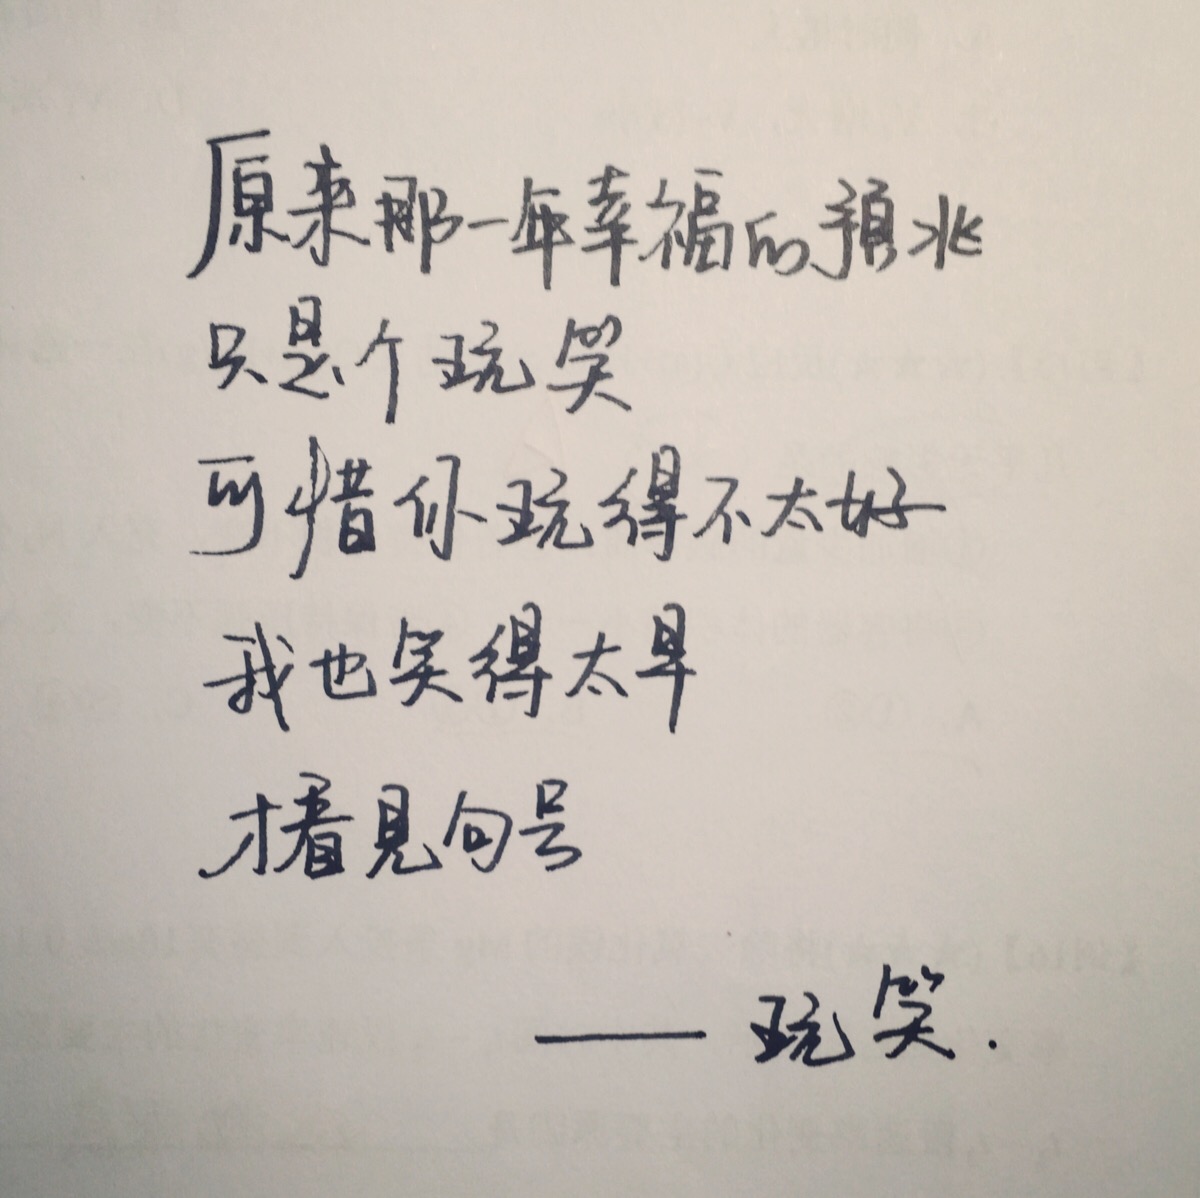 原来那一年幸福的预兆
只是个玩笑
可惜你玩得不太好
我也笑得太早
才看見句号
—— 玩笑.